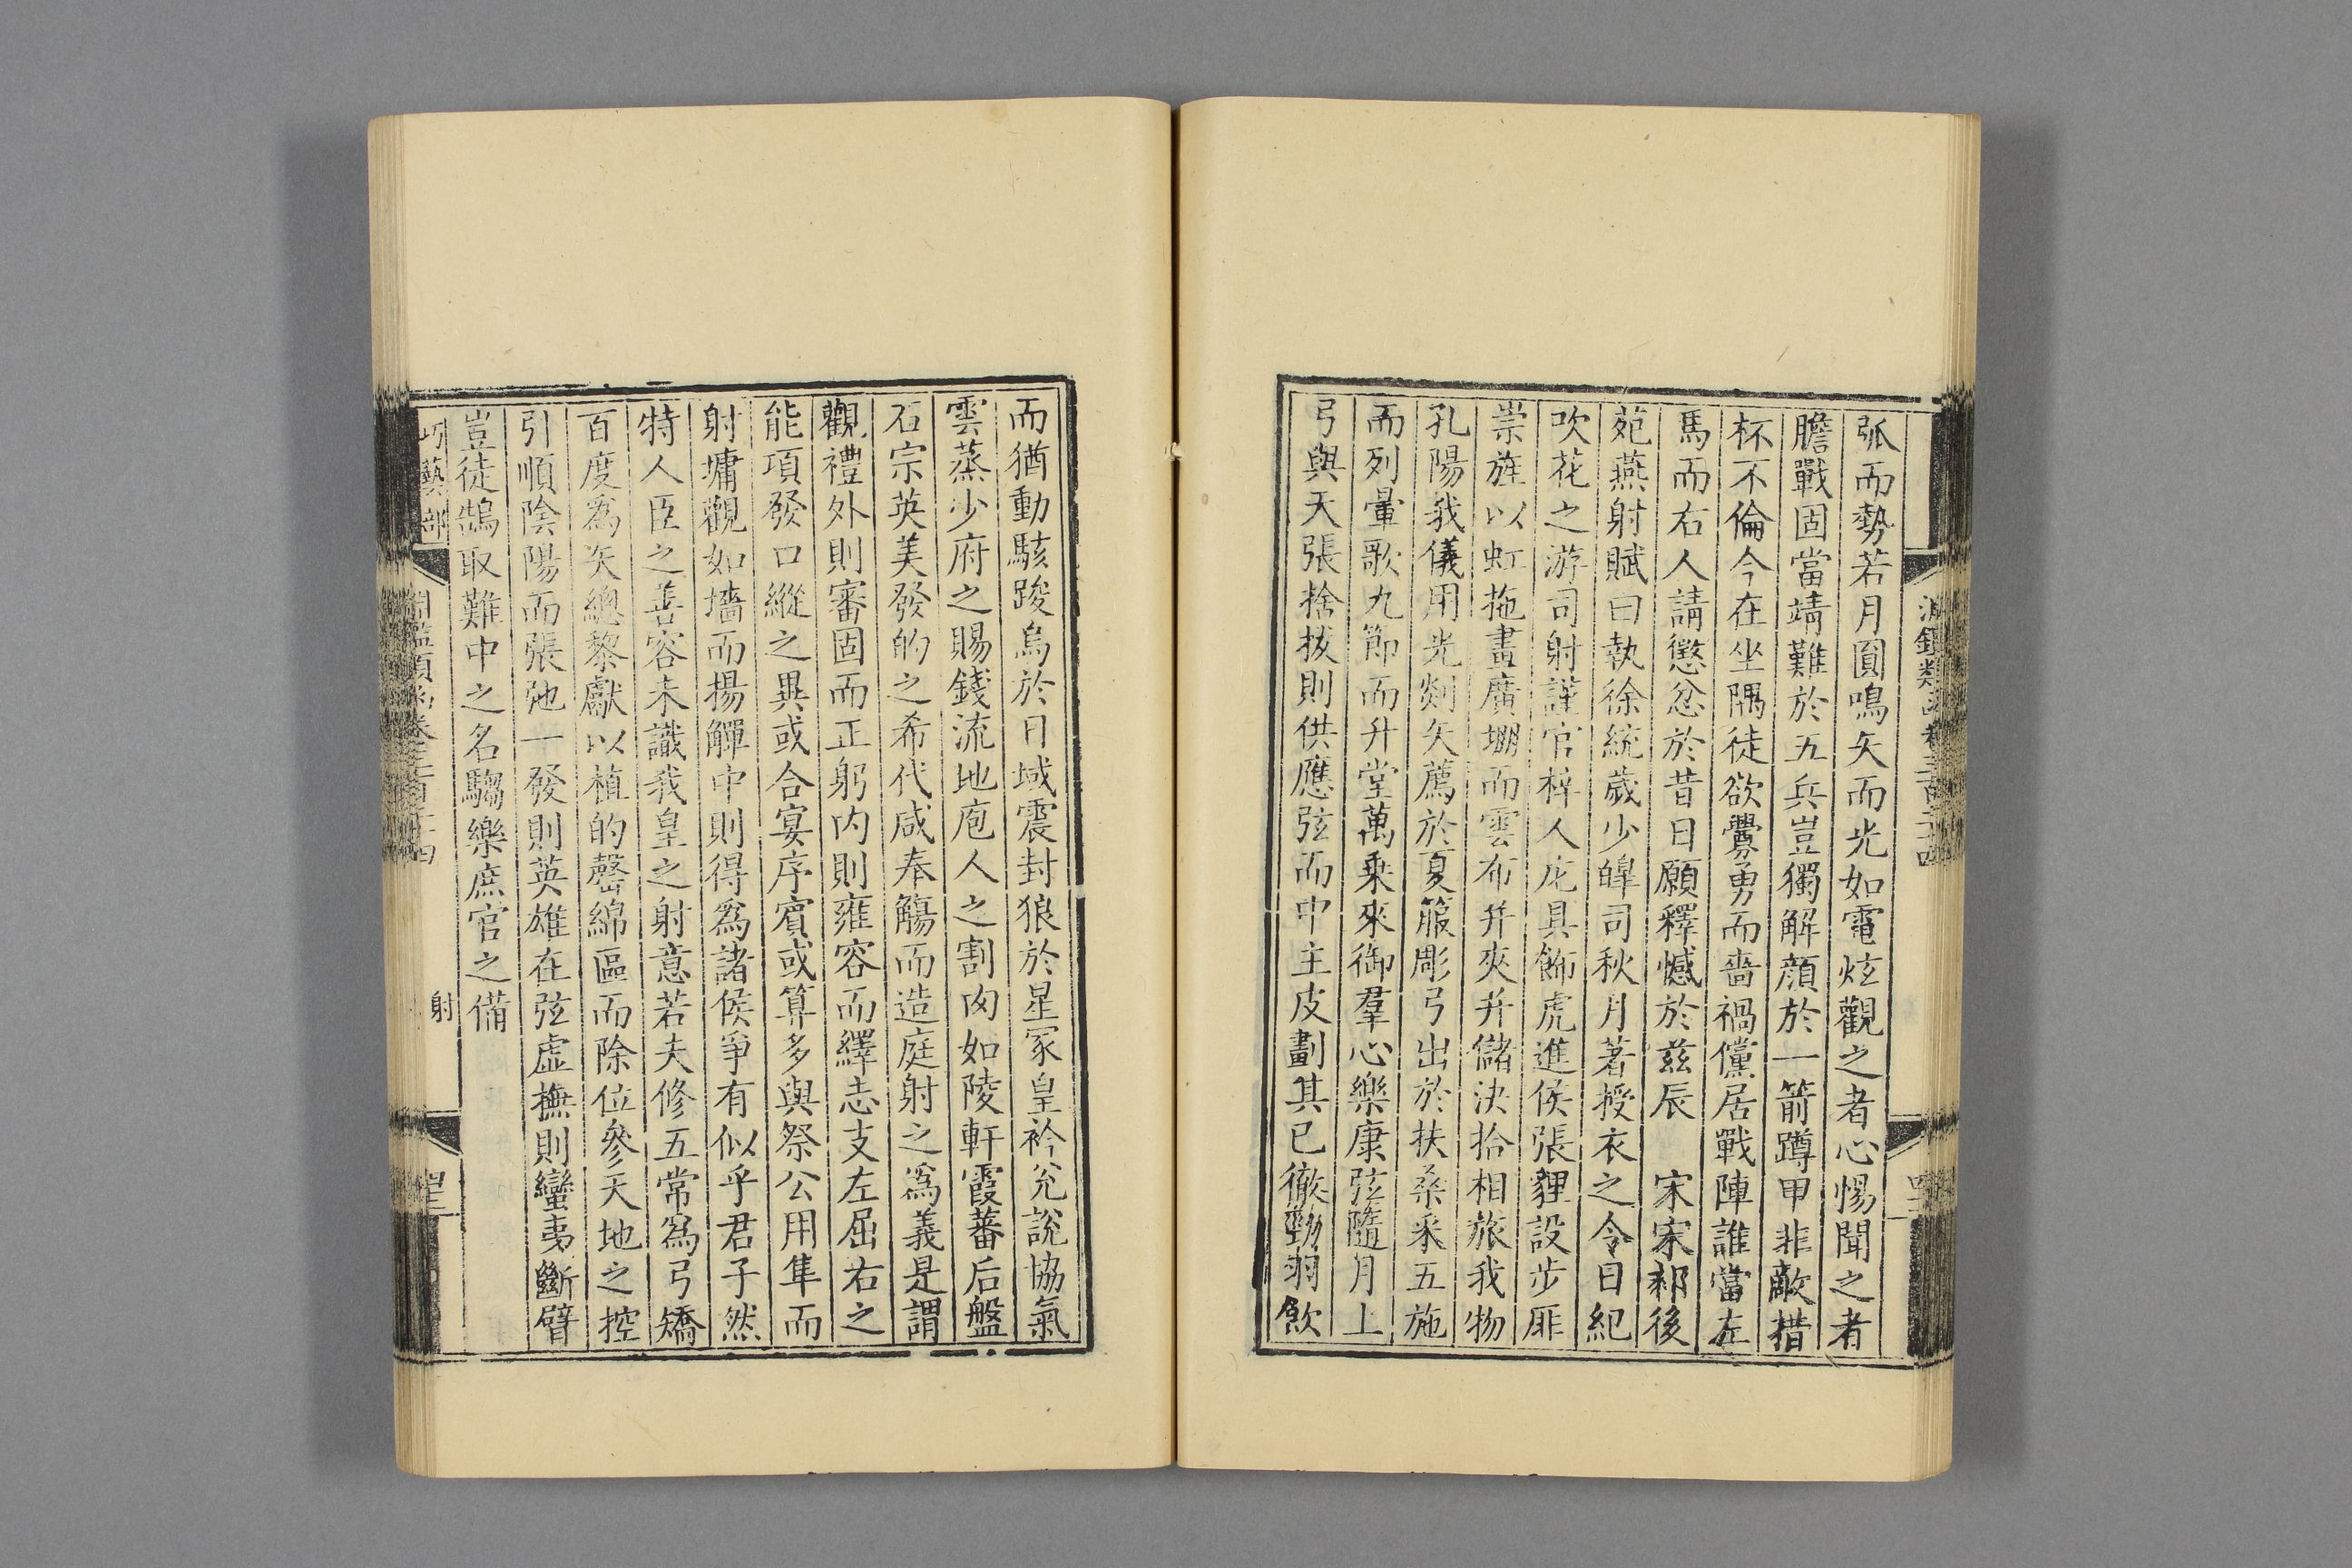 弧而勢若月圓鳴矢而光如電炫觀之者心惕聞之者
膽戰固當靖難於五兵豈獨解顔於一箭蹲甲非敵措
杯不倫今在坐隅徒欲釁勇而嗇禍儻居戰陣誰當左
馬而右人請懲忿於昔日願釋憾於兹辰　宋宋祁後
苑燕射賦曰執徐統歲少皡司秋月著授衣之令日紀
吹花之游司射謹官梓人庀具飾虎進侯張貍設步厞
崇旌以虹拖畫廣堋而雲布并夾并儲決拾相旅我物
孔陽我儀用光剡矢薦於夏箙彫弓出於扶桑采五施
而列暈歌九節而升堂萬乗來御羣心樂康弦隨月上
弓與天張捨拔則供應弦而中主皮劃其已徹勁羽飲
而猶動駭踆烏於日域震封狼於星冢皇衿兊說協氣
雲蒸少府之賜錢流地庖人之割肉如陵軒霞蕃后盤
石宗英美發的之希代咸奉觴而造庭射之爲義是謂
觀禮外則審固而正躬内則雍容而繹志支左屈右之
能項發口縱之異或合宴序賓或算多與祭公用隼而
射墉觀如墻而揚觶中則得爲諸侯爭有似乎君子然
特人臣之善容未識我皇之射意若夫修五常爲弓矯
百度爲矢總黎獻以植的罄綿區而除位參天地之控
引順陰陽而張弛一發則英雄在弦虛撫則蠻夷斷臂
豈徒鵠取難中之名騶樂庶官之備
巧藝部
射